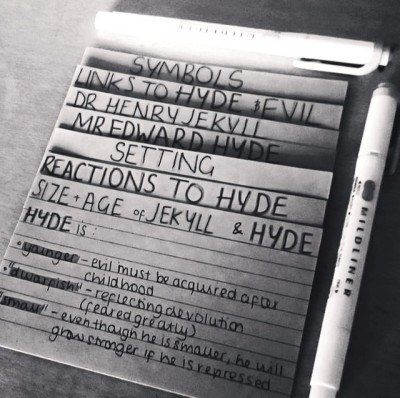 SYMBOLS
LINKS TO HYDE & EVIL
DR HENRY JEKYLL
MR EDWARD HYDE
SETTING
REACTIONS TO HYDE
SIZE + AGE of JEKYLL & HYDE
HYDE is :
"younger" - evil must be acquired after
childhood
"dwarfish" - reflecting devolution
(feared greatly)
"small" - even though he is smaller, he will
grow stronger if he is repressed
MILDLINER